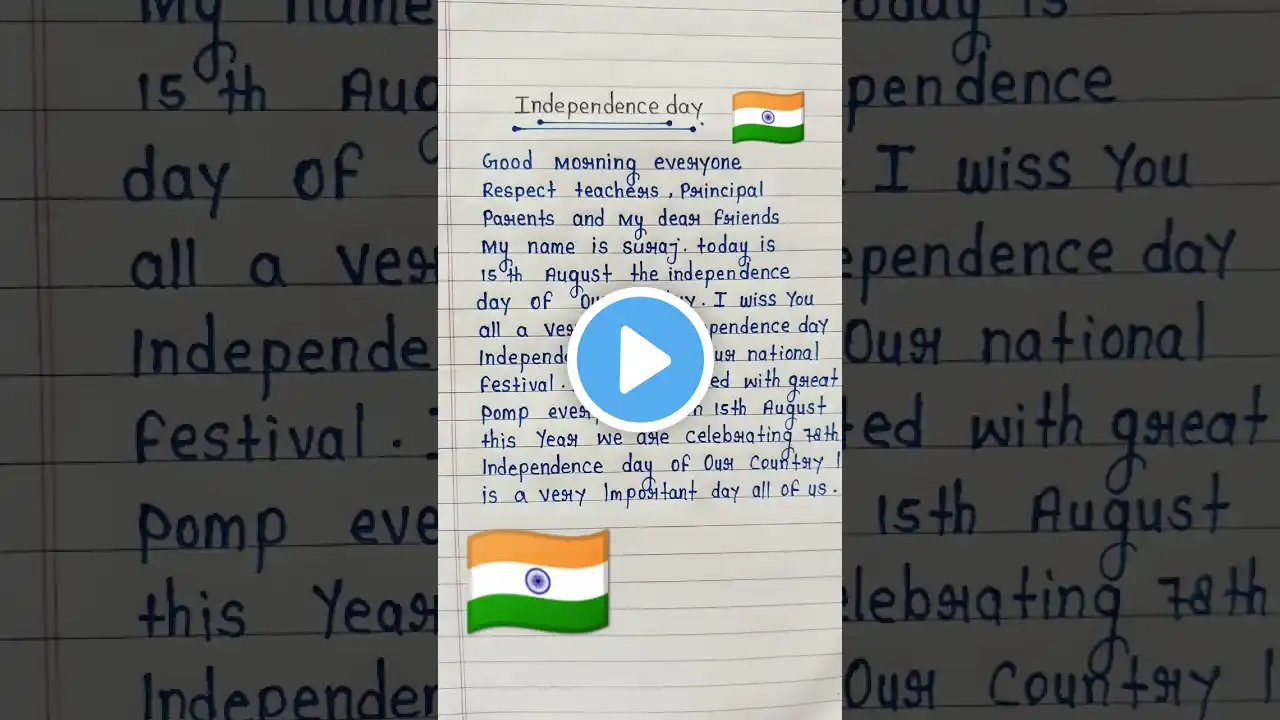 Independence day
Good morning everyone
Respect teachers, Principal
Parents and my dear friends
My name is suraj. today is
15th August the independence
day of our . I wiss You
all a ver pendence day
Independ our national
festival. ed with great
Pomp ever n 15th August
this Year we are celebrating 78th
Independence day of Our Country I
is a very Important day all of us.